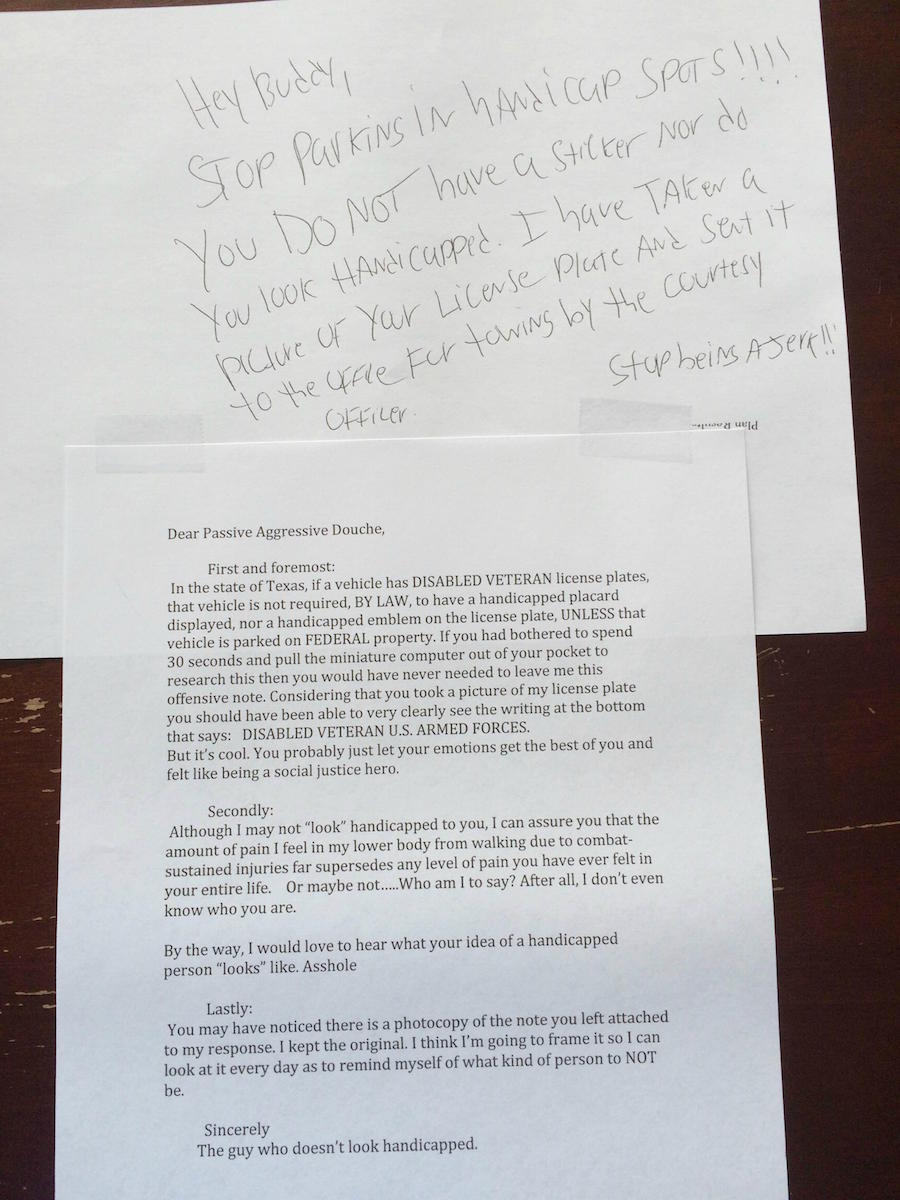 Hey Buddy,
STOP Parking IN hANdicap SPOTS!!!!
You DO NOT have a sticker Nor do
You look HANdicapped. I have TAKEN a
picture OF Your License plate And Sent it
to the OFFice For towing by the courtesy
OFFicer.
Stop being A Jerk!!
Plan
Dear Passive Aggressive Douche,
First and foremost:
In the state of Texas, if a vehicle has DISABLED VETERAN license plates,
that vehicle is not required, BY LAW, to have a handicapped placard
displayed, nor a handicapped emblem on the license plate, UNLESS that
vehicle is parked on FEDERAL property. If you had bothered to spend
30 seconds and pull the miniature computer out of your pocket to
research this then you would have never needed to leave me this
offensive note. Considering that you took a picture of my license plate
you should have been able to very clearly see the writing at the bottom
that says: DISABLED VETERAN U.S. ARMED FORCES.
But it's cool. You probably just let your emotions get the best of you and
felt like being a social justice hero.
Secondly:
Although I may not “look” handicapped to you, I can assure you that the
amount of pain I feel in my lower body from walking due to combat-
sustained injuries far supersedes any level of pain you have ever felt in
your entire life. Or maybe not.....Who am I to say? After all, I don't even
know who you are.
By the way, I would love to hear what your idea of a handicapped
person “looks” like. Asshole
Lastly:
You may have noticed there is a photocopy of the note you left attached
to my response. I kept the original. I think I'm going to frame it so I can
look at it every day as to remind myself of what kind of person to NOT
be.
Sincerely
The guy who doesn't look handicapped.